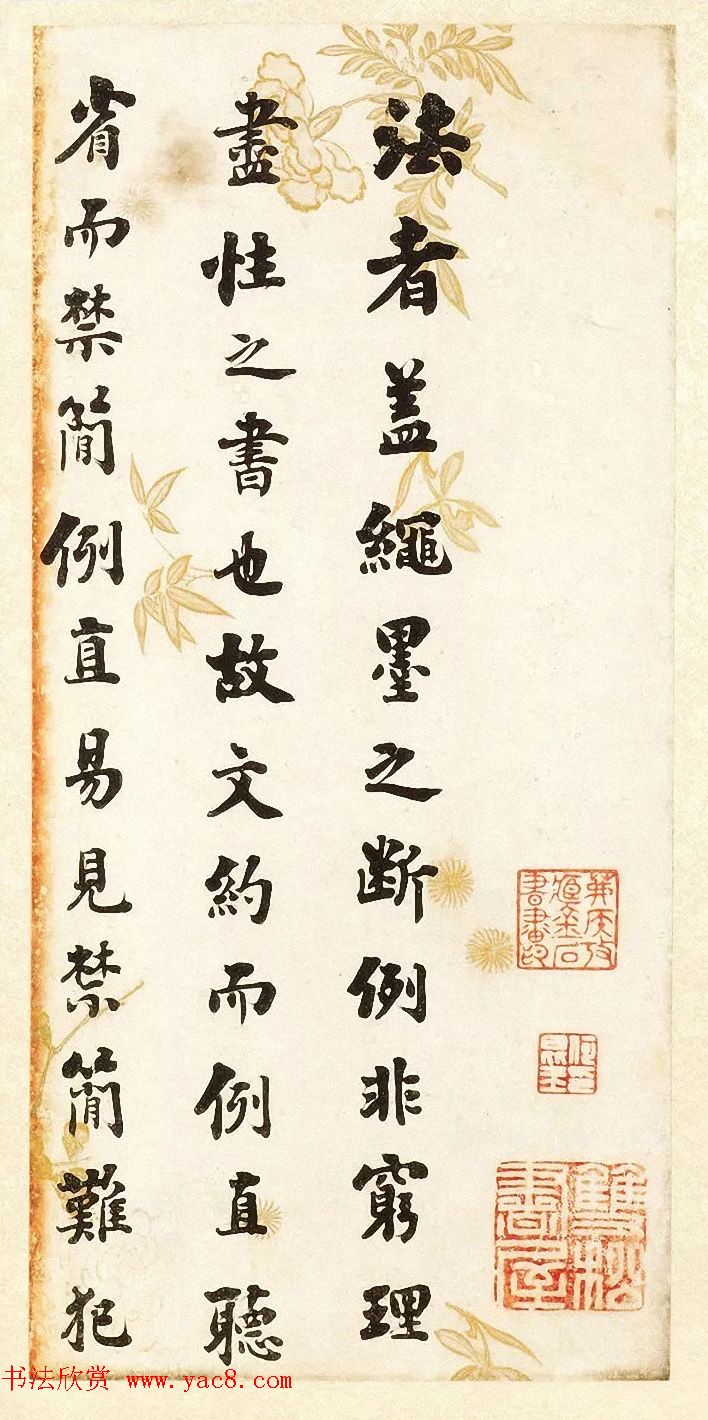 法者盖繩墨之断例非窮理
盡性之書也故文約而例直聽
省而禁簡例直易見禁簡難犯
雙松書屋
书法欣赏 www.yac8.com